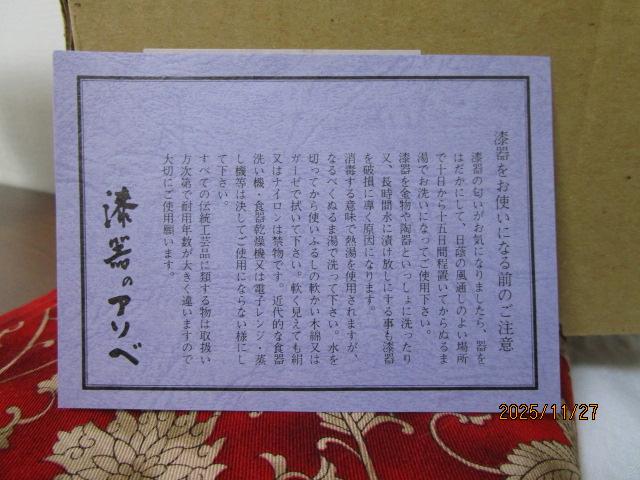 漆器をお使いになる前のご注意
漆器の匂いがお気になりましたら、器を
はだかにして、日陰の風通しのよい場所
で十日から十五日間程置いてからぬるま
湯でお洗いになってご使用下さい。
漆器を金物や陶器といっしょに洗ったり
又、長時間水に漬け放しにする事も漆器
を破損に導く原因になります。
消毒する意味で熱湯を使用されますが、
なるべくぬるま湯で洗って下さい。水を
切ってから使いふるしの軟かい木綿又は
ガーゼで拭いて下さい。軟く見えても絹
又はナイロンは禁物です。近代的な食器
洗い機・食器乾燥機又は電子レンジ・蒸
し機等は決してご使用にならない様にし
て下さい。
すべての伝統工芸品に類する物は取扱い
方次第で耐用年数が大きく違いますので
大切にご使用願います。
漆器のアソベ
2025/11/27